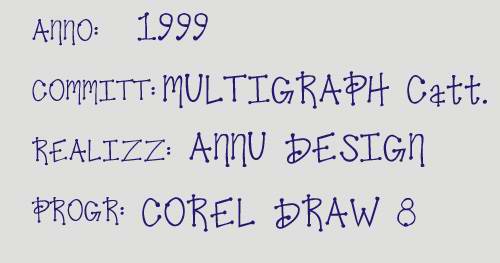 ANNO: 1999
COMMITT: MULTIGRAPH Catt.
REALIZZ: ANNU DESIGN
PROGR: COREL DRAW 8